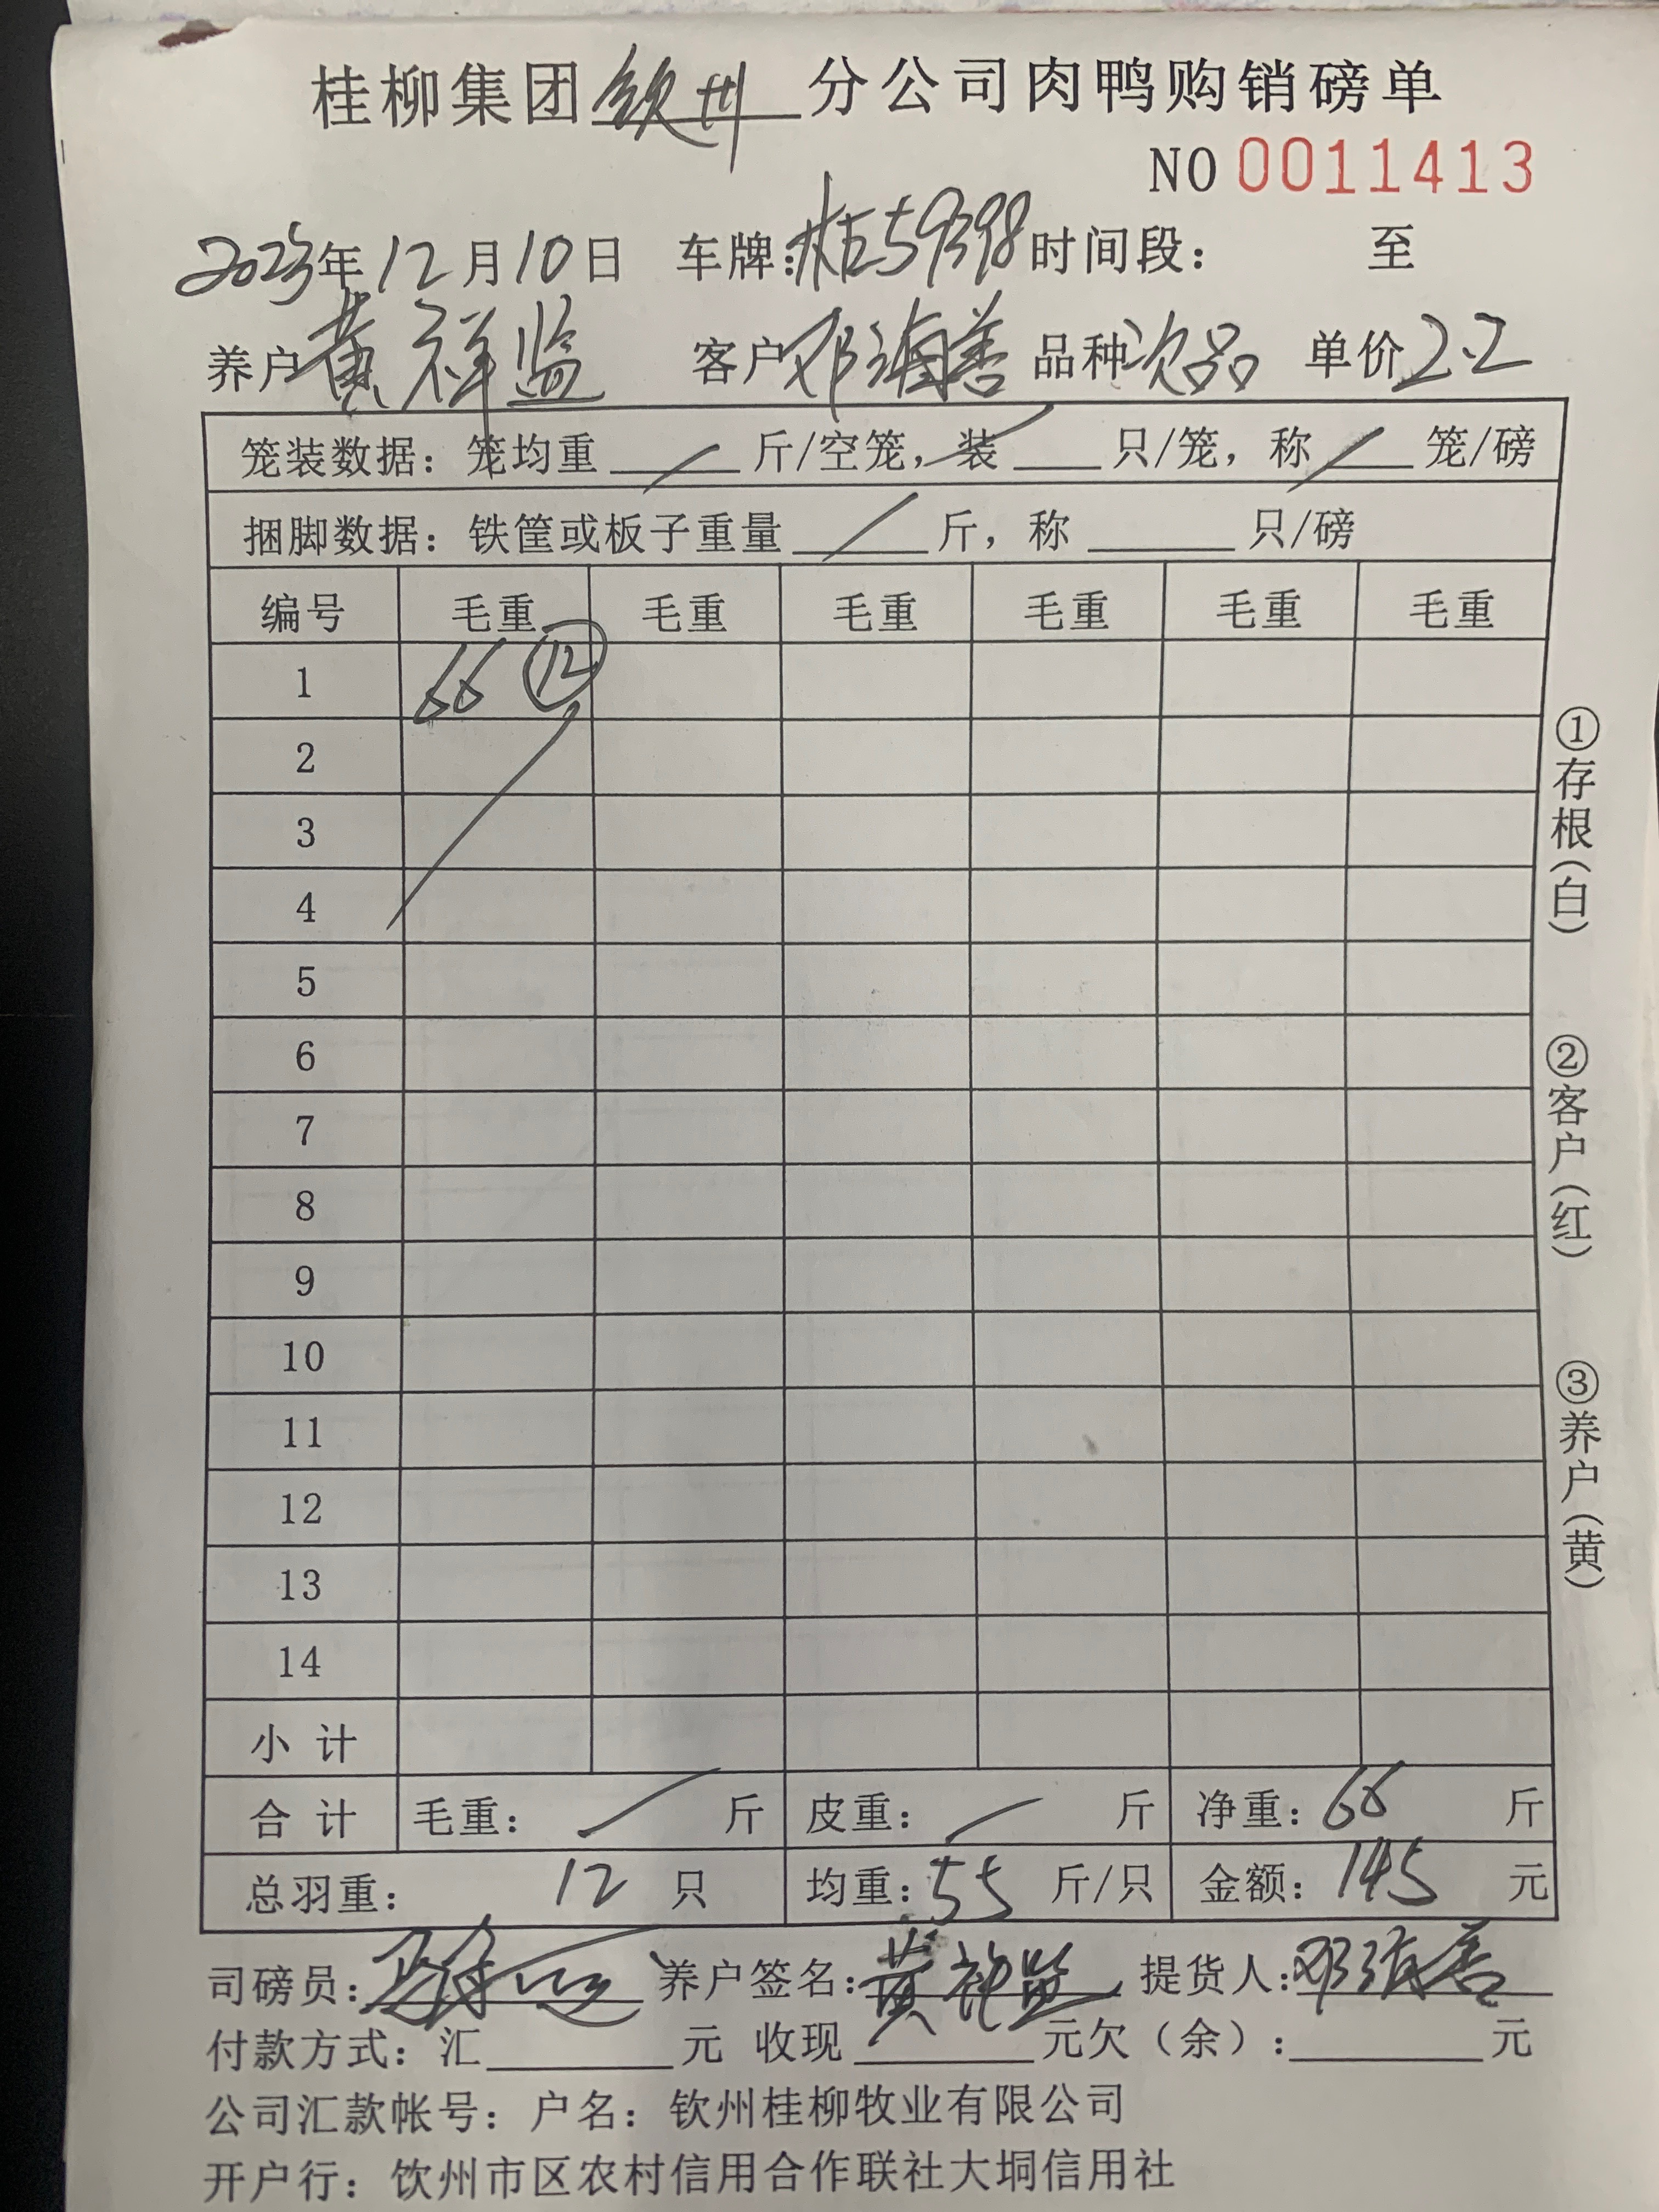 桂柳集团钦州分公司肉鸭购销磅单
NO 0011413
2023年12月10日 车牌:桂E59398时间段: 至
养户黄祥监 客户邓海善 品种次品 单价2.2
笼装数据: 笼均重____斤/空笼, 装____只/笼, 称____笼/磅
捆脚数据: 铁筐或板子重量____斤, 称____只/磅
编号 毛重 毛重 毛重 毛重 毛重 毛重
1 66 ⑫
2
3
4
5
6
7
8
9
10
11
12
13
14
小计
合计 毛重: 斤 皮重: 斤 净重: 66 斤
总羽重: 12 只 均重: 55 斤/只 金额: 145 元
司磅员: 养户签名: 黄祥监 提货人: 邓海善
付款方式: 汇____元 收现____元欠(余):____元
公司汇款帐号: 户名: 钦州桂柳牧业有限公司
开户行: 钦州市区农村信用合作联社大垌信用社
①存根(白)
②客户(红)
③养户(黄)